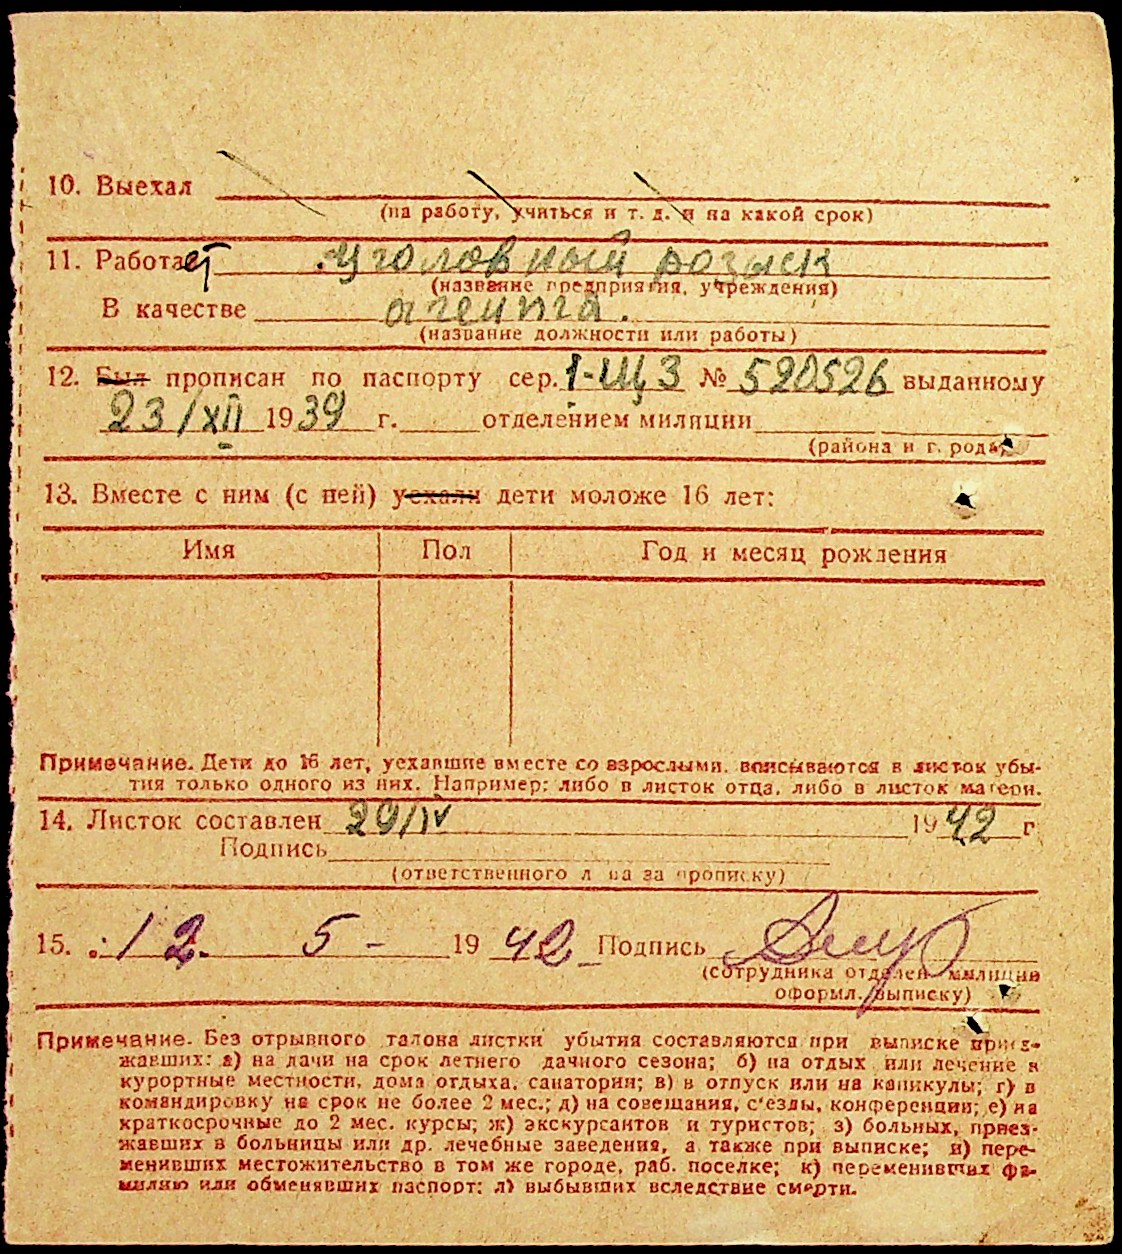 10. Выехал
(на работу, учиться и т. д. и на какой срок)
11. Работает уголовный розыск
(название предприятия, учреждения)
В качестве агента.
(название должности или работы)
12. Был прописан по паспорту сер. 1-ЩЗ № 520526 выданному
23/XII 1939 г. отделением милиции
(района и города)
13. Вместе с ним (с ней) уехали дети моложе 16 лет:
Имя Пол Год и месяц рождения
Примечание. Дети до 16 лет, уехавшие вместе со взрослыми, вписываются в листок убы-
тия только одного из них. Например: либо в листок отца, либо в листок матери.
14. Листок составлен 29/IV 1942 г
Подпись
(ответственного л ца за прописку)
15. 12. 5 - 1942 Подпись
(сотрудника отделен милиции
оформл. выписку)
Примечание. Без отрывного талона листки убытия составляются при выписке приез-
жавших: а) на дачи на срок летнего дачного сезона; б) на отдых или лечение в
курортные местности, дома отдыха, санатории; в) в отпуск или на каникулы; г) в
командировку на срок не более 2 мес.; д) на совещания, с'езды, конференции; е) на
краткосрочные до 2 мес. курсы; ж) экскурсантов и туристов; з) больных, приез-
жавших в больницы или др. лечебные заведения, а также при выписке; и) пере-
менивших местожительство в том же городе, раб. поселке; к) переменивших фа-
милию или обменявших паспорт; л) выбывших вследствие смерти.